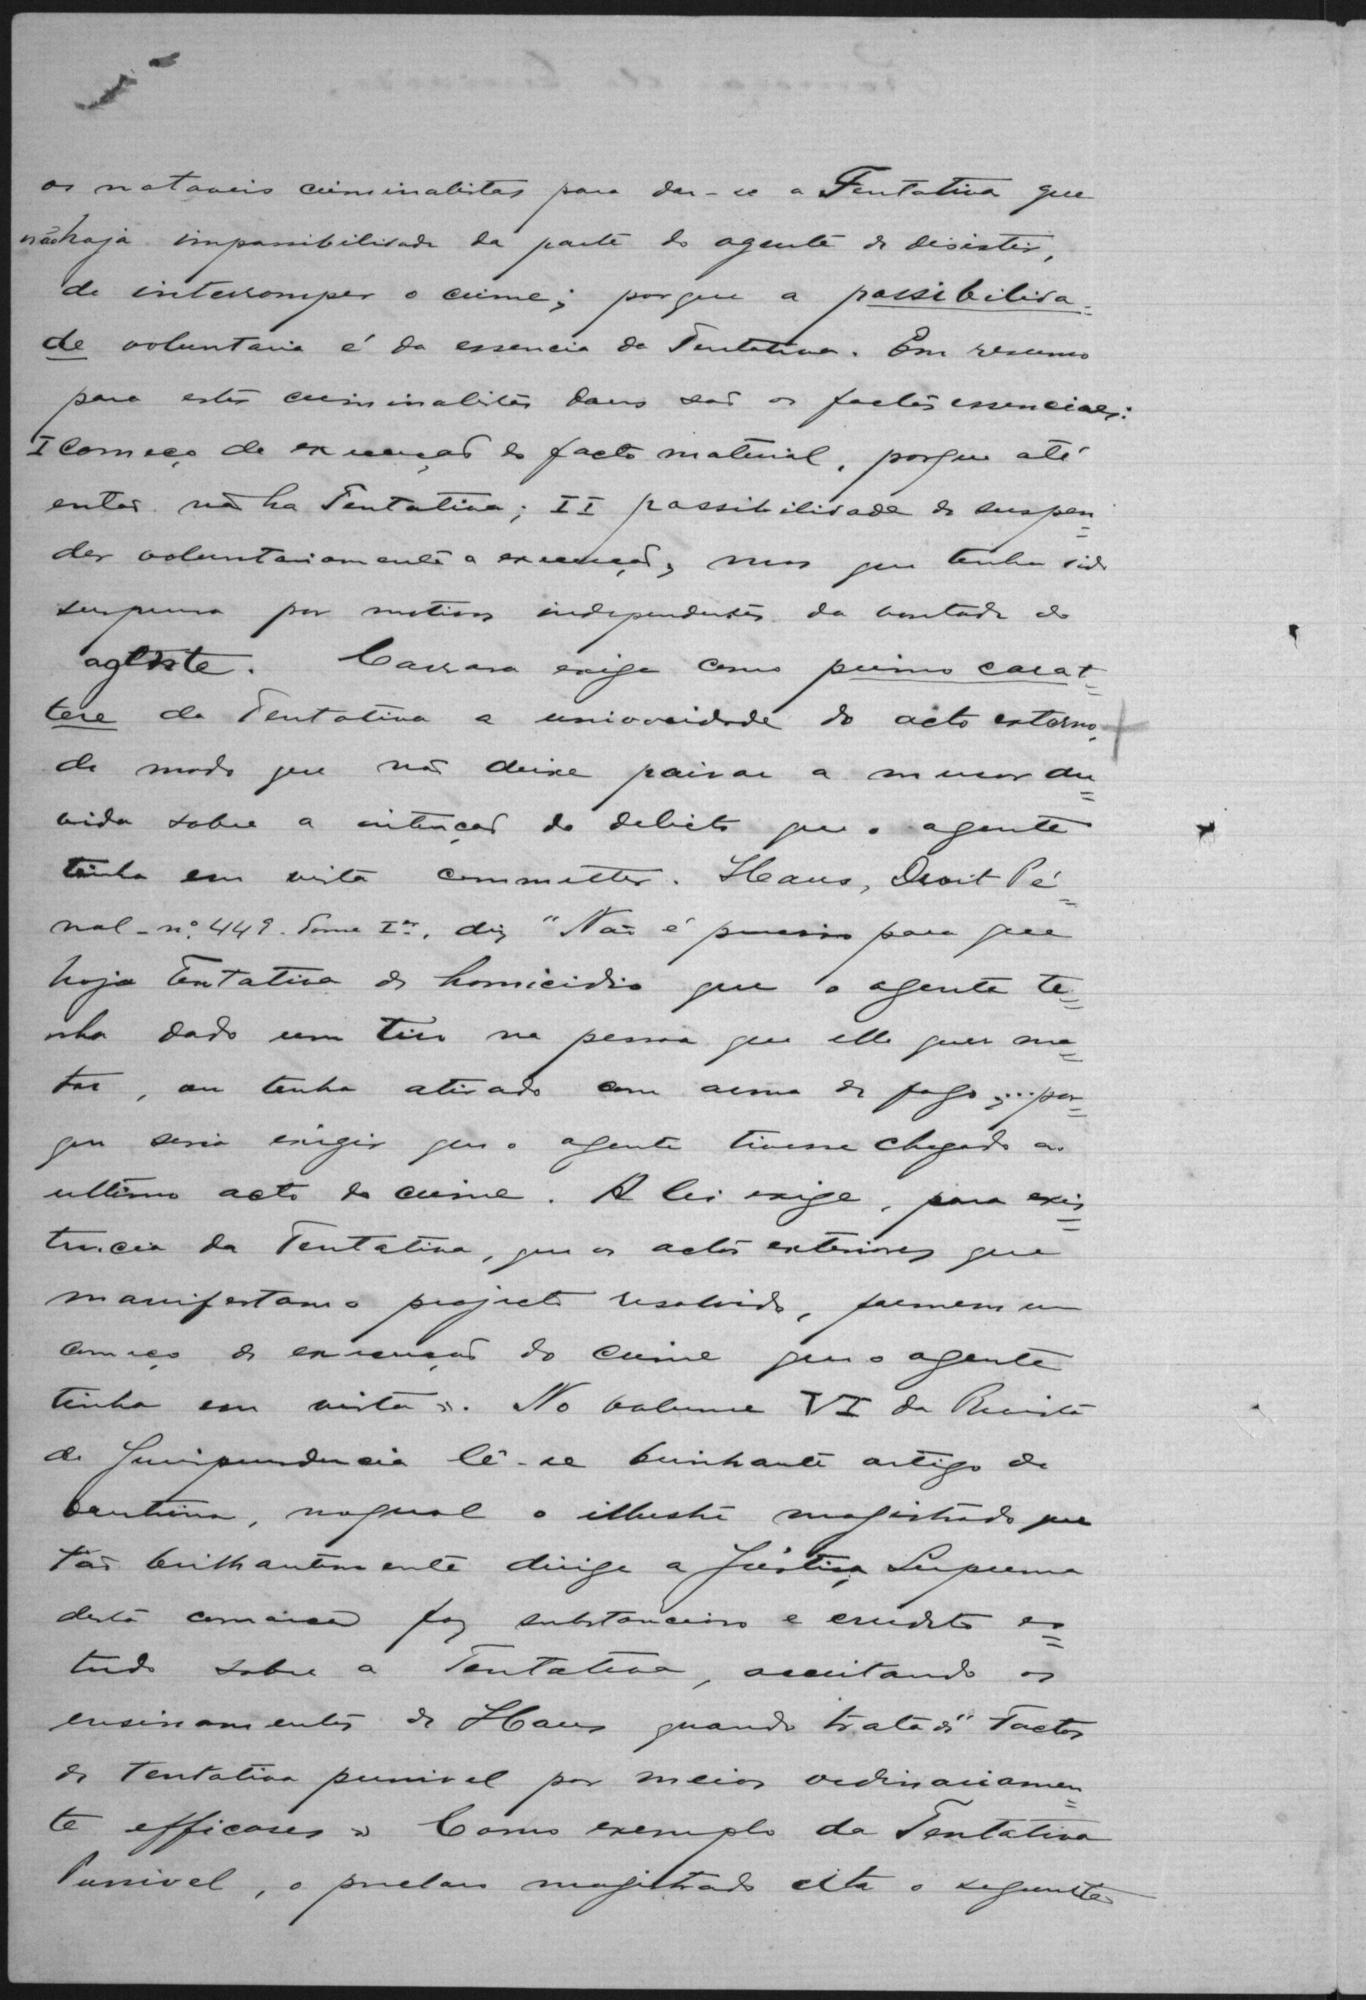 os notaveis criminalistas para dar-se a Tentativa que
não haja impossibilidade da parte do agente de desistir,
de interromper o crime; porque a possibilida=
de voluntaria é da essencia da Tentativa. Em resumo
para estes criminalistas dous são os factos essenciaes:
I começo de execução do facto material, porque até
então não ha Tentativa; II possibilidade de suspen=
der voluntariamente a execução, mas que tenha sido
suspensa por motivos independentes da vontade do
agente. Carrara exige como primo carat=
tere da Tentativa a univocidade do acto externo,
de modo que não deixe pairar a menor du=
vida sobre a intenção do delicto que o agente
tinha em vista commetter. Haus, Droit Pé=
nal - nº 449. Tome Ier, diz "Não é preciso para que
haja Tentativa de homicidio que o agente te=
nha dado um tiro na pessoa que elle quer ma=
tar, ou tenha atirado com arma de fogo; ... por=
que seria exigir que o agente tivesse chegado ao
ultimo acto do crime. A lei exige, para exis=
tencia da Tentativa, que os actos exteriores que
manifestam o projecto resolvido, formem um
começo de execução do crime que o agente
tinha em vista». No volume VI da Revista
de Jurispundencia lê-se brinhante artigo de
doutrina, no qual o illustre magistrado que
tão brilhantemente dirige a Justiça Suprema
desta comarca faz substancioso e erudito es=
tudo sobre a Tentativa, acceitando os
ensinamentos de Haus quando trata de "Factos
de tentativa punivel por meios ordinariamen=
te efficases» Como exemplo da Tentativa
Punivel, o preclaro magistrado cita o seguinte